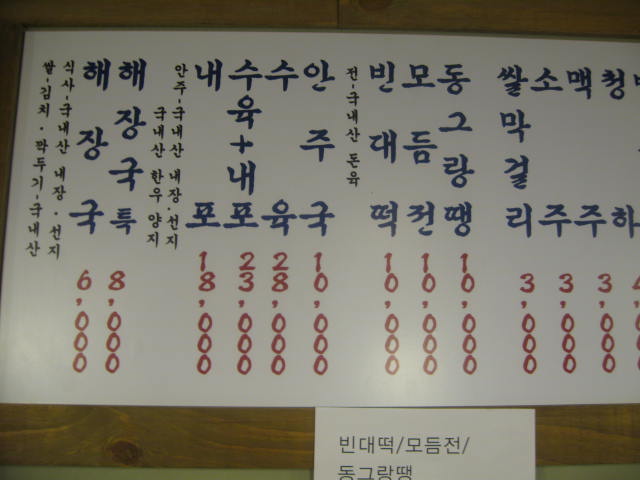 식사-국내산 내장·선지
쌀-김치·깍두기-국내산
해장국 6,000
해장국특 8,000
안주-국내산 내장·선지
국내산 한우 양지
내포 18,000
수육+내포 23,000
수육 28,000
안주국 10,000
전-국내산 돈육
빈대떡 10,000
모듬전 10,000
동그랑땡 10,000
쌀막걸리 3,000
소주 3,000
맥주 3,000
청하
빈대떡/모듬전/
동그랑땡